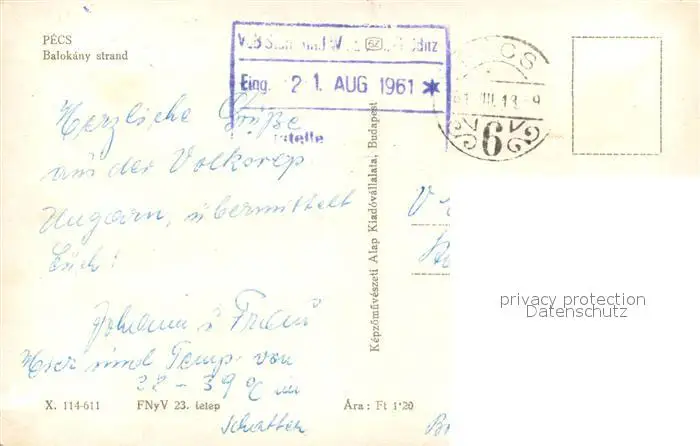 PÉCS
Balokány strand
Eing. 21. AUG 1961 *
stelle
6
Herzliche Grüße
aus der Volksrep
Ungarn, übermittelt
Euch!
Johann u
Hier sind Temp. von
°C im
Schatten
Képzőművészeti Alap Kiadóvállalata, Budapest
X. 114-611 FNyV 23. telep Ára: Ft 1·20
privacy protection
Datenschutz